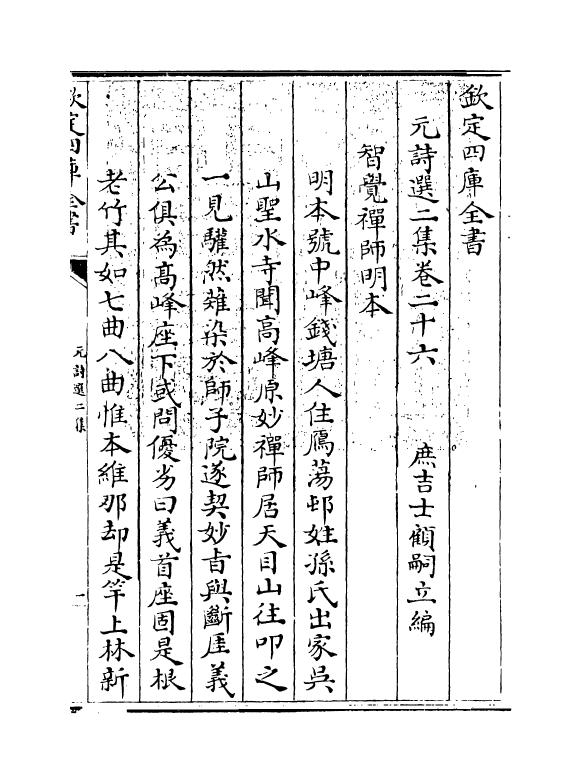 欽定四庫全書
元詩選二集卷二十六
庶吉士顧嗣立編
智覺禪師明本
明本號中峰錢塘人住鴈蕩邨姓孫氏出家吳
山聖水寺聞高峰原妙禪師居天目山往叩之
一見驩然薙染於師子院遂契妙旨與斷厓義
公俱為高峰座下或問優劣曰義首座固是根
老竹其如七曲八曲惟本維那却是竿上林新
欽定四庫全書
元詩選二集
一